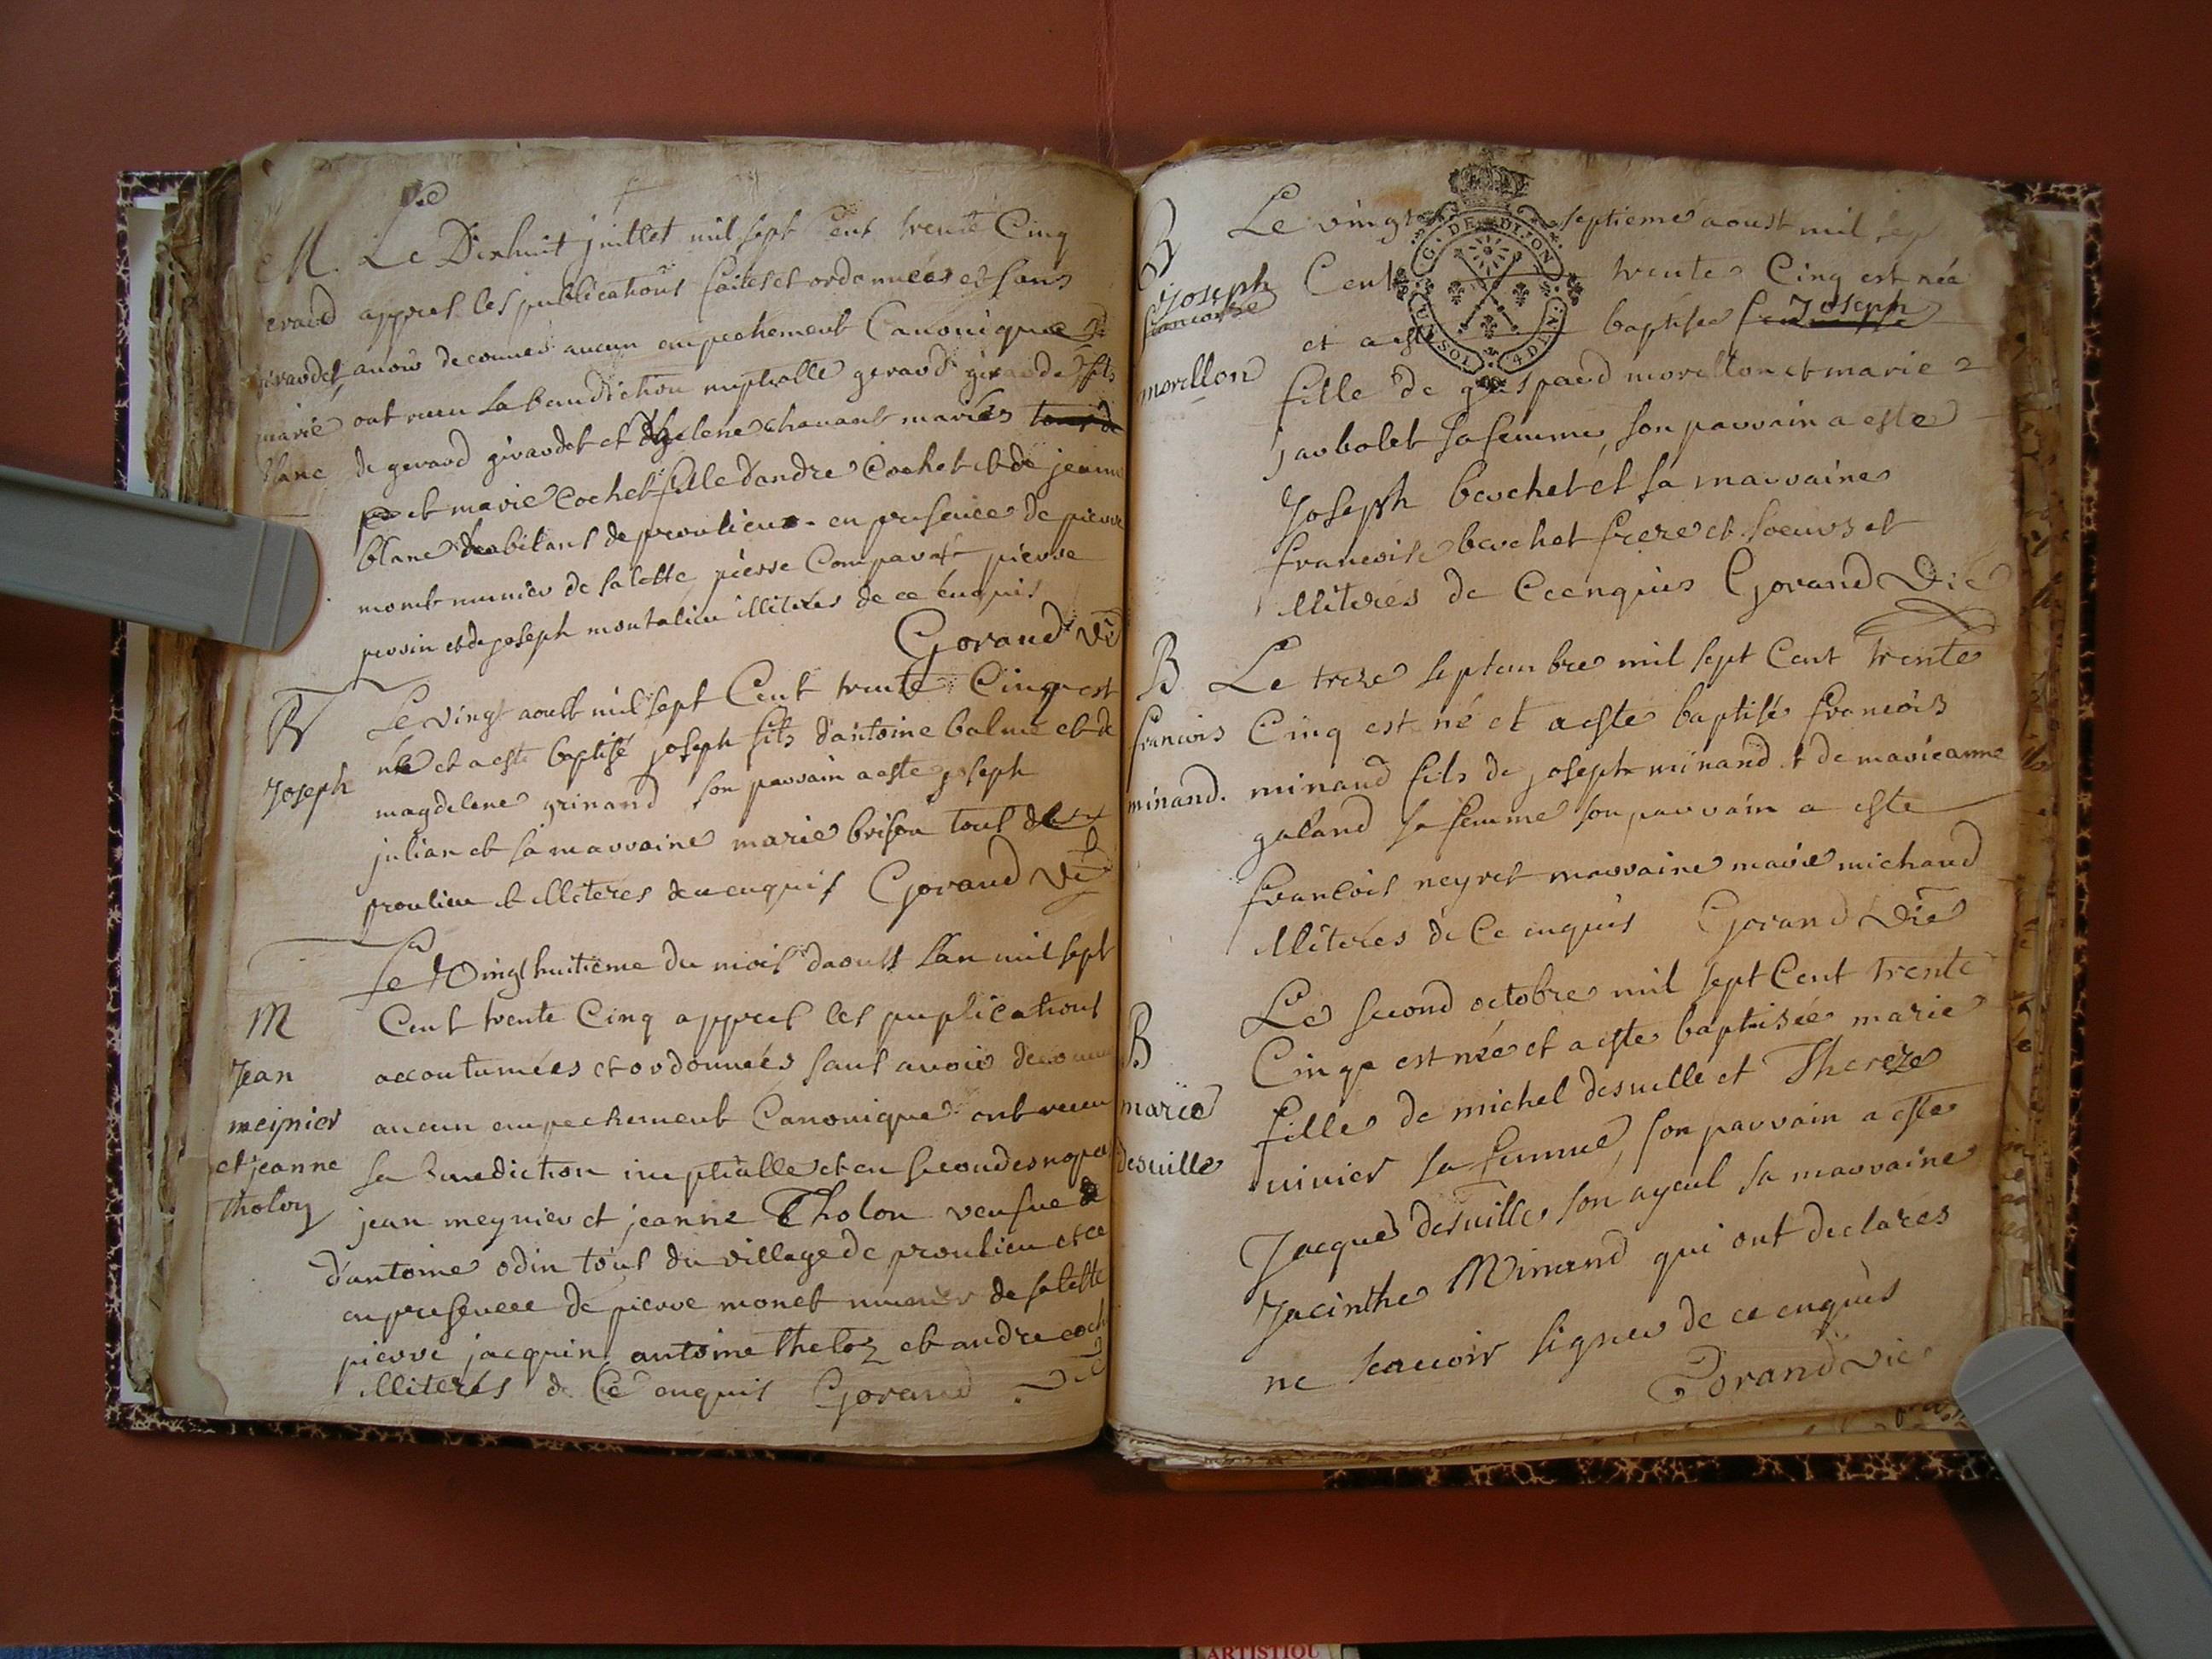 M. Le Dixhuit juillet mil sept Cent trente Cinq
erard appres les publications faites et ordonnées et sans
girardet avoir decouvert aucun empechement Canonique
marie ont receu La benediction nuptialle gerard girardet fils
blanc de gerard girardet et d'helene chavant mariés
et marie Cochet fille d'andre Cochet et de jeanne
blanc habitans de proulieu en presence de pierre
monet munier de salette pierre Comparat pierre
perrin et de joseph montalieu illiteres de ce enquis
Gorand Vic
B Le vingt aoust mil sept Cent trente Cinq est
né et a esté baptisé joseph fils d'antoine balme et de
Joseph magdelene grinand son parrain a este joseph
julian et sa marraine marie brison tous de
proulieu illiteres de ce enquis Gorand Vic
Le Vingt huitieme du mois d'aoust L'an mil sept
M Cent trente Cinq appres les puplications
Jean accoutumées et ordonnées sans avoir decouvert
meynier aucun empechement Canonique ont receu
et jeanne la benediction nuptialle et en secondes nopces
Tholon jean meynier et jeanne Tholon veufue de
d'antoine odin tous du village de proulieu et ce
en presence de pierre monet munier de salette
pierre jacquin antoine theloz et andre coch
illiterés de Ce enquis Gorand Vic
B Le vingt septieme aoust mil sept
Joseph Cent trente Cinq est née
francoise et a esté baptisée Joseph
morellon fille de gaspard morellon et marie
jarbolet sa femme son parrain a este
Joseph bochet et sa marraine
francoise bochet frere et soeurs et
illiteres de Ce enquis Gorand Vic
B Le treze septembre mil sept Cent trente
francois Cinq est né et a esté baptisé francois
minand. minand fils de joseph minand & de marieanne
galand sa femme son parrain a este
francois neyret marraine marie michaud
illiteres de Ce enquis Gorand Vic
Le second octobre mil sept Cent trente
B Cinqe est née et a esté baptisée marie
marie fille de michel desuille et Thereze
desuille uinier sa femme, son parrain a este
Jacques desuille son ayeul sa marraine
Jacinthe Minand qui ont declares
ne scauoir signer de ce enquis
Gorand vic
G. DE DIJON
4 DEN
ARTISTIQU